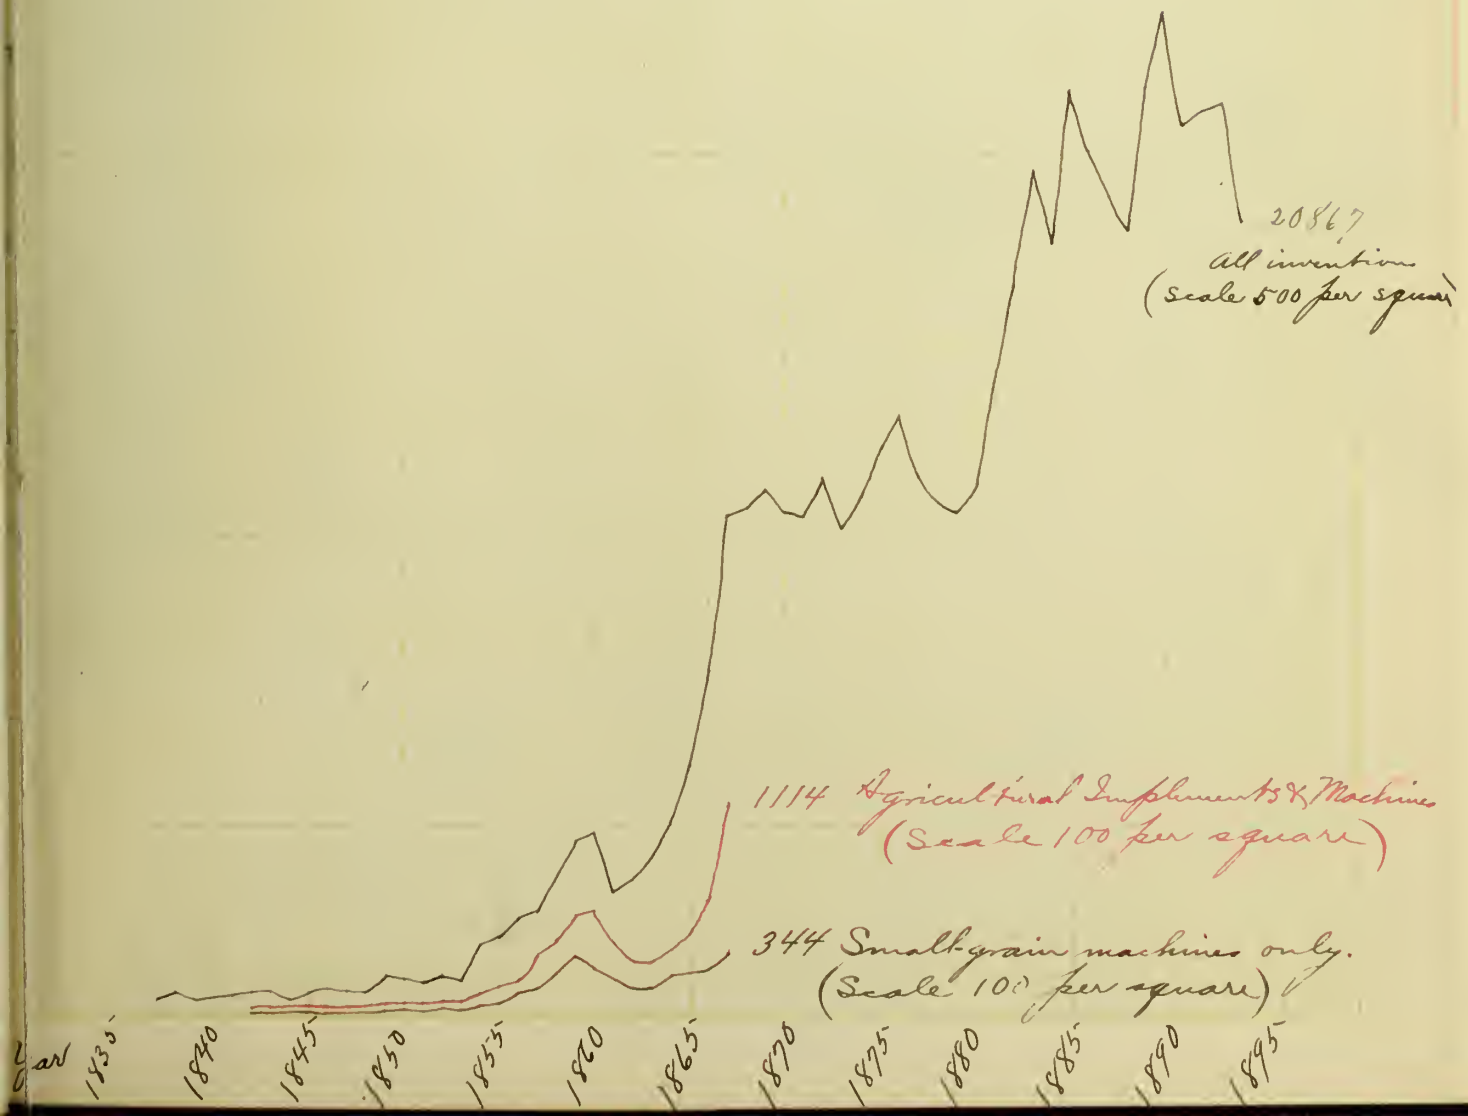 20867
All inventions
(Scale 500 per square)
1114 Agricultural Implements & Machines
(Scale 100 per square)
344 Small-grain machines only.
(Scale 100 per square)
Year 1835 1840 1845 1850 1855 1860 1865 1870 1875 1880 1885 1890 1895